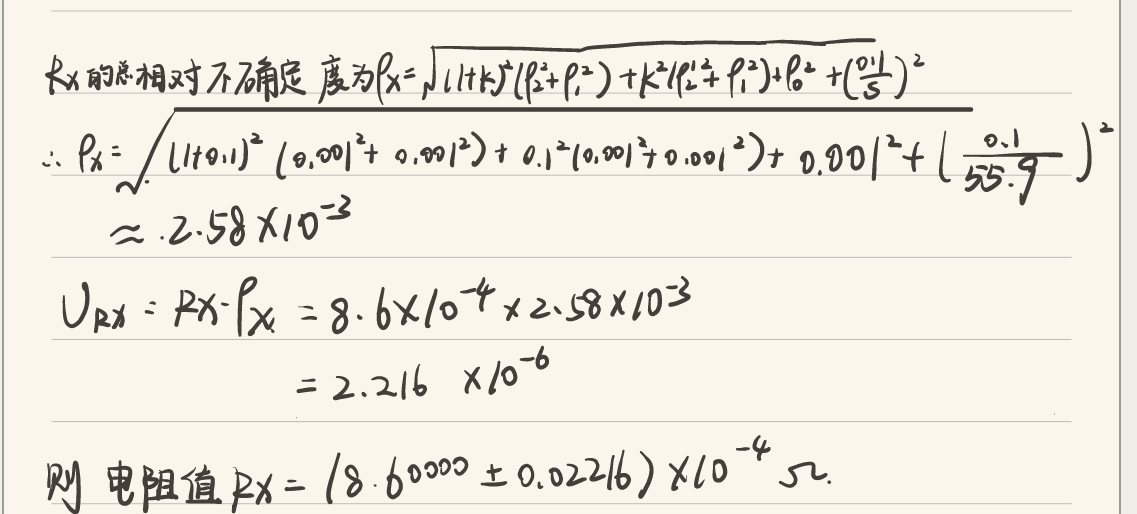 Rx的总相对不确定度为ρx=√((1+k)²(ρ₂²+ρ₁²)+k²(ρ₂'²+ρ₁'²)+ρ₀²+(0.1/S)²)
∴ ρx=√((1+0.1)²(0.001²+0.001²)+0.1²(0.001²+0.001²)+0.001²+(0.1/55.9)²)
≈ 2.58×10⁻³
U_RX = RX·ρx = 8.6×10⁻⁴×2.58×10⁻³
= 2.216 ×10⁻⁶
则 电阻值RX=(8.60000±0.02216)×10⁻⁴Ω.